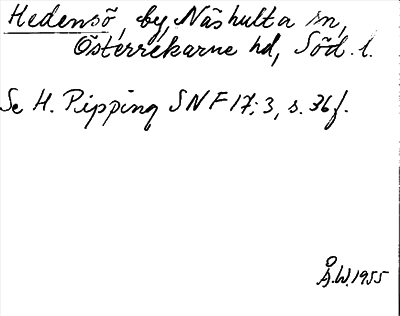 Hedensö, by, Näshulta sn,
Österrekarne hd, Söd. l.
Se H. Pipping SNF 17:3, s. 36 f.
Å.W. 1955